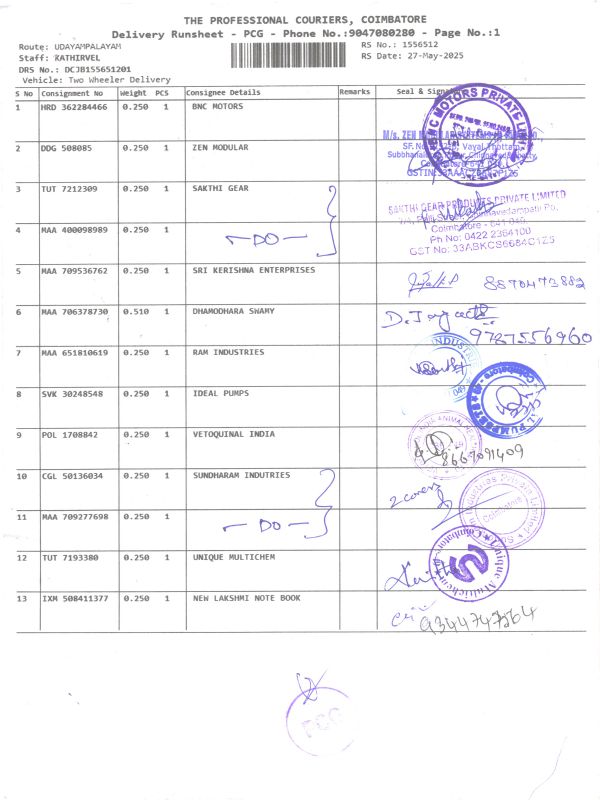 THE PROFESSIONAL COURIERS, COIMBATORE
Delivery Runsheet - PCG - Phone No.:9047080280 - Page No.:1
Route: UDAYAMPALAYAM
RS No.: 1556512
Staff: KATHIRVEL
RS Date: 27-May-2025
DRS No.: DCJB155651201
Vehicle: Two Wheeler Delivery
S No Consignment No Weight PCS Consignee Details Remarks Seal & Signature
1 HRD 362284466 0.250 1 BNC MOTORS
BNC MOTORS PRIVATE LIMITED
2 DDG 508085 0.250 1 ZEN MODULAR
M/s. ZEN MODULAR
3 TUT 7212309 0.250 1 SAKTHI GEAR
SAKTHI GEAR PRODUCTS PRIVATE LIMITED
4 MAA 400098989 0.250 1 - DO -
Coimbatore - 641 049.
Ph No: 0422 2364100
GST No: 33ABKCS6684C1Z5
5 MAA 709536762 0.250 1 SRI KERISHNA ENTERPRISES 8870473882
6 MAA 706378730 0.510 1 DHAMODHARA SWAMY
9787556960
7 MAA 651810619 0.250 1 RAM INDUSTRIES
8 SVK 30248548 0.250 1 IDEAL PUMPS
9 POL 1708842 0.250 1 VETOQUINAL INDIA
8667091409
10 CGL 50136034 0.250 1 SUNDHARAM INDUTRIES
2 covers
11 MAA 709277698 0.250 1 - DO -
Coimbatore
12 TUT 7193380 0.250 1 UNIQUE MULTICHEM
Unique Multichem
13 IXM 508411377 0.250 1 NEW LAKSHMI NOTE BOOK
9344747264
PCG